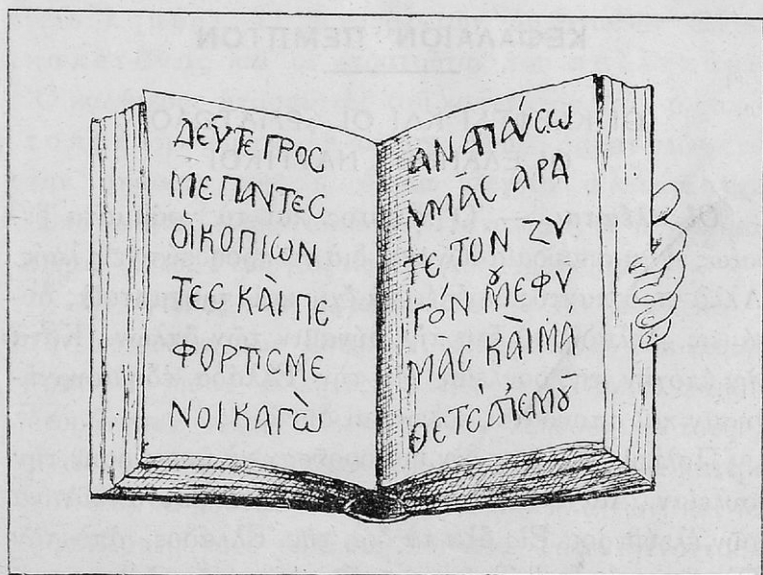 ΔΕΥ͂ΤΕ ΠΡΟC
ΜΕ ΠΑΝΤΕC
ΟἹ ΚΟΠΙΩΝ
ΤΕC ΚΑῚ ΠΕ
ΦΟΡΤΙCΜΕ
ΝΟΙ ΚΑΓῺ
ΑΝΑΠΑΎCΩ
ΥΜΑC ΑΡΑ
ΤΕ ΤΟΝ ΖΥ
ΓΌΝ ΜȢ ΕΦ Υ
ΜΑC ΚΑῚ ΜΆ
ΘΕΤΕ ἈΠ ΕΜȢ͂